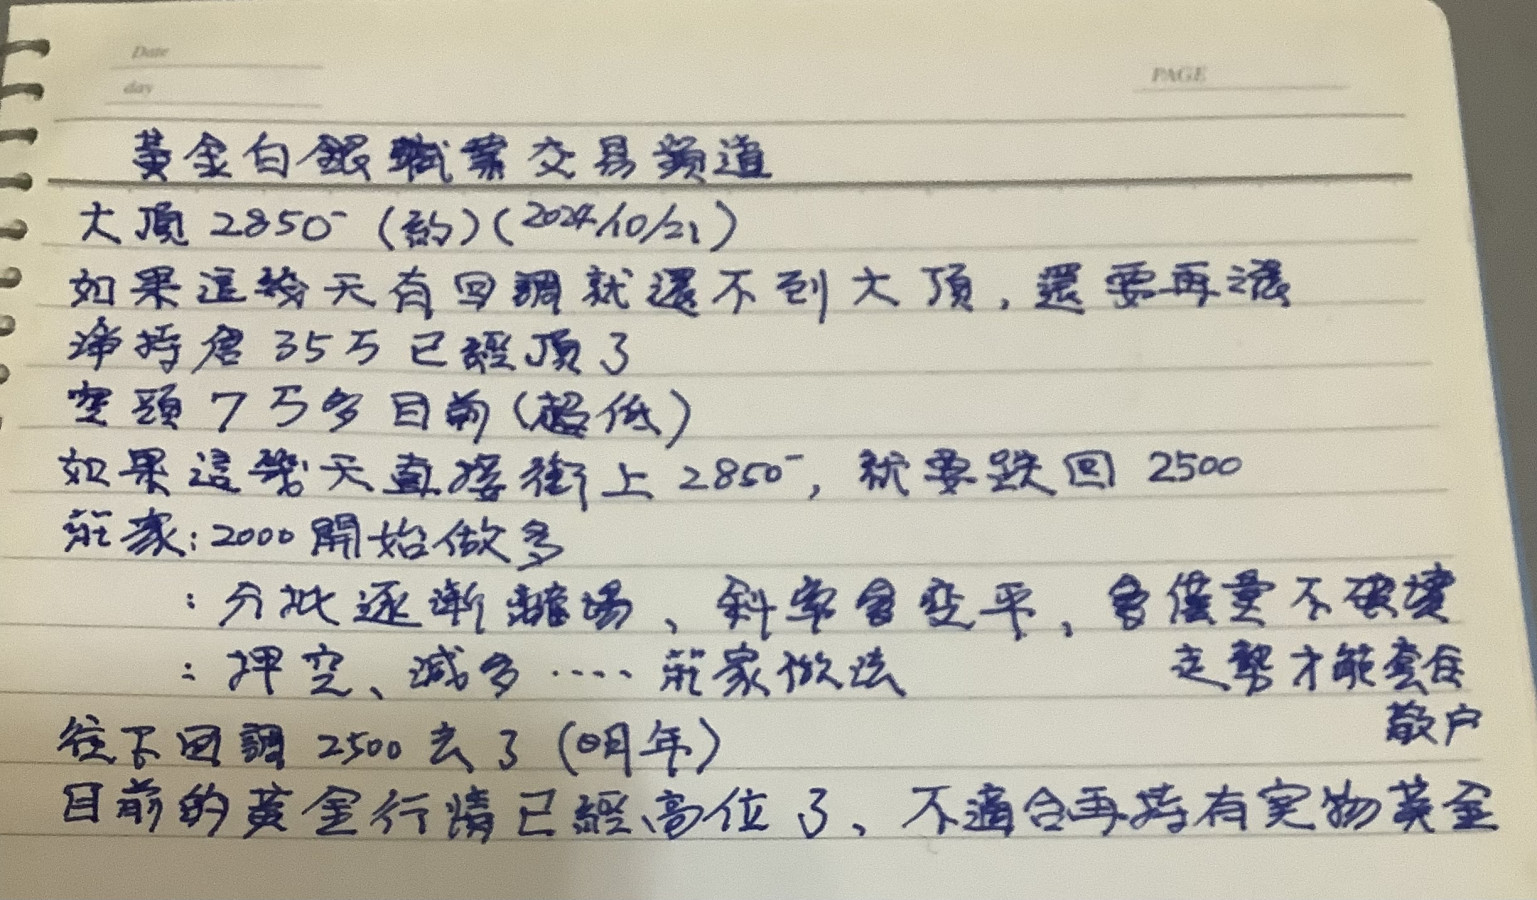 Date
day
PAGE
黃金白銀職業交易頻道
大頂 2850 (約)(2024/10/21)
如果這幾天有回調就還不到大頂,還要再漲
淨持倉 35万已經頂了
空頭 7万多目前(超低)
如果這幾天直接衝上 2850,就要跌回 2500
莊家:2000開始做多
:分批逐漸離場、斜率會變平,會儘量不破壞
走勢才能套住
散戶
:押空、減多‥‥莊家做法
往下回調 2500去了(明年)
目前的黃金行情已經高位了、不適合再持有実物黃金